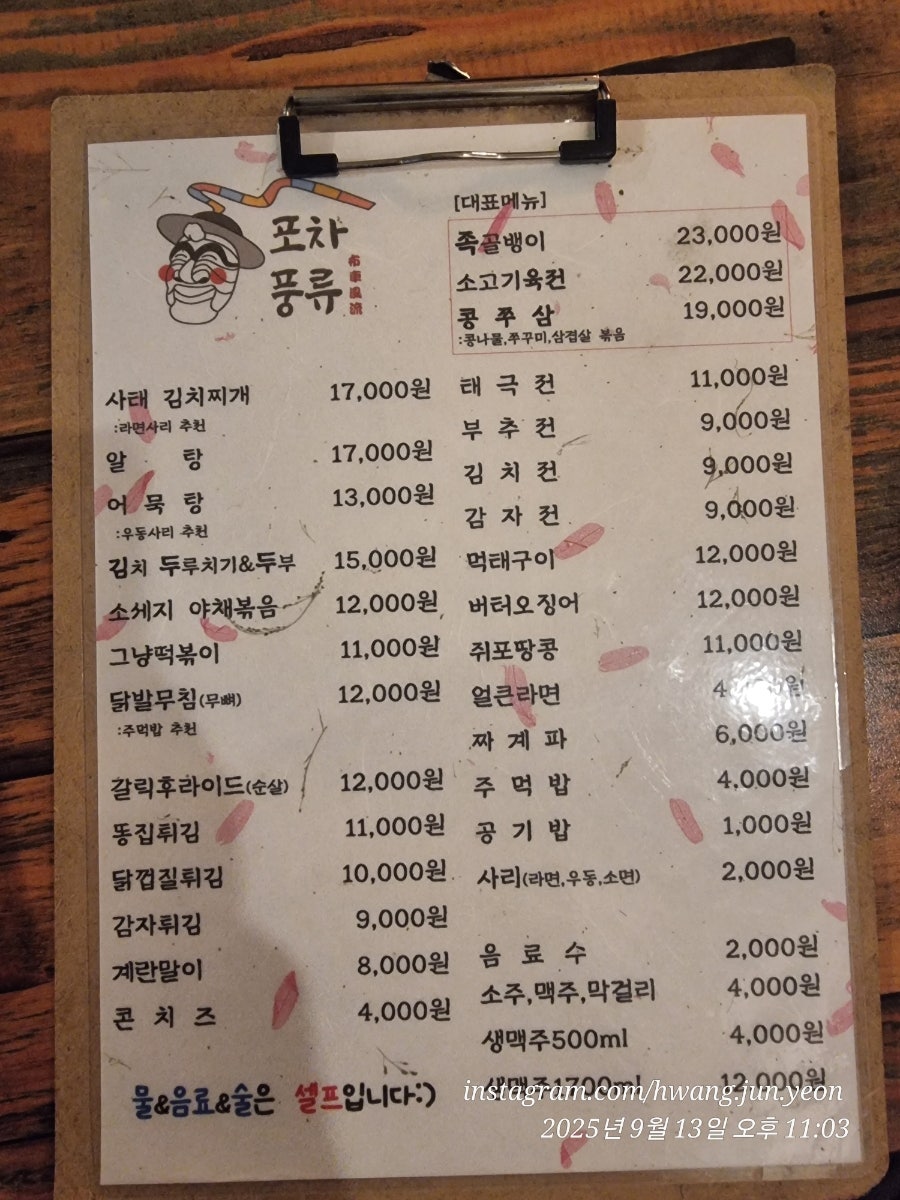 포차
풍류
布車風流
[대표메뉴]
족골뱅이 23,000원
소고기육전 22,000원
콩 쭈 삼 19,000원
:콩나물,쭈꾸미,삼겹살 볶음
사태 김치찌개 17,000원
:라면사리 추천
알 탕 17,000원
어 묵 탕 13,000원
:우동사리 추천
김치 두루치기&두부 15,000원
소세지 야채볶음 12,000원
그냥떡볶이 11,000원
닭발무침(무뼈) 12,000원
:주먹밥 추천
갈릭후라이드(순살) 12,000원
똥집튀김 11,000원
닭껍질튀김 10,000원
감자튀김 9,000원
계란말이 8,000원
콘 치 즈 4,000원
태 극 전 11,000원
부 추 전 9,000원
김 치 전 9,000원
감 자 전 9,000원
먹태구이 12,000원
버터오징어 12,000원
쥐포땅콩 11,000원
얼큰라면
짜 계 파 6,000원
주 먹 밥 4,000원
공 기 밥 1,000원
사리(라면,우동,소면) 2,000원
음 료 수 2,000원
소주,맥주,막걸리 4,000원
생맥주500ml 4,000원
생맥주1700ml 12,000원
물&음료&술은 셀프입니다:)
instagram.com/hwang.jun.yeon
2025년 9월 13일 오후 11:03